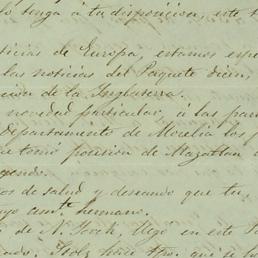 lo tenga á tu disposicion, este
ticias de Europa, estamos espe
las noticias del Paquete
cion de la Inglaterra.
novedad particular, á las par
departamento de Morelia los
tomó posesion de Mazatlan
os de salud y deseando que tu,
hermano.
de N. York, llegó en este
hace tpo. que se